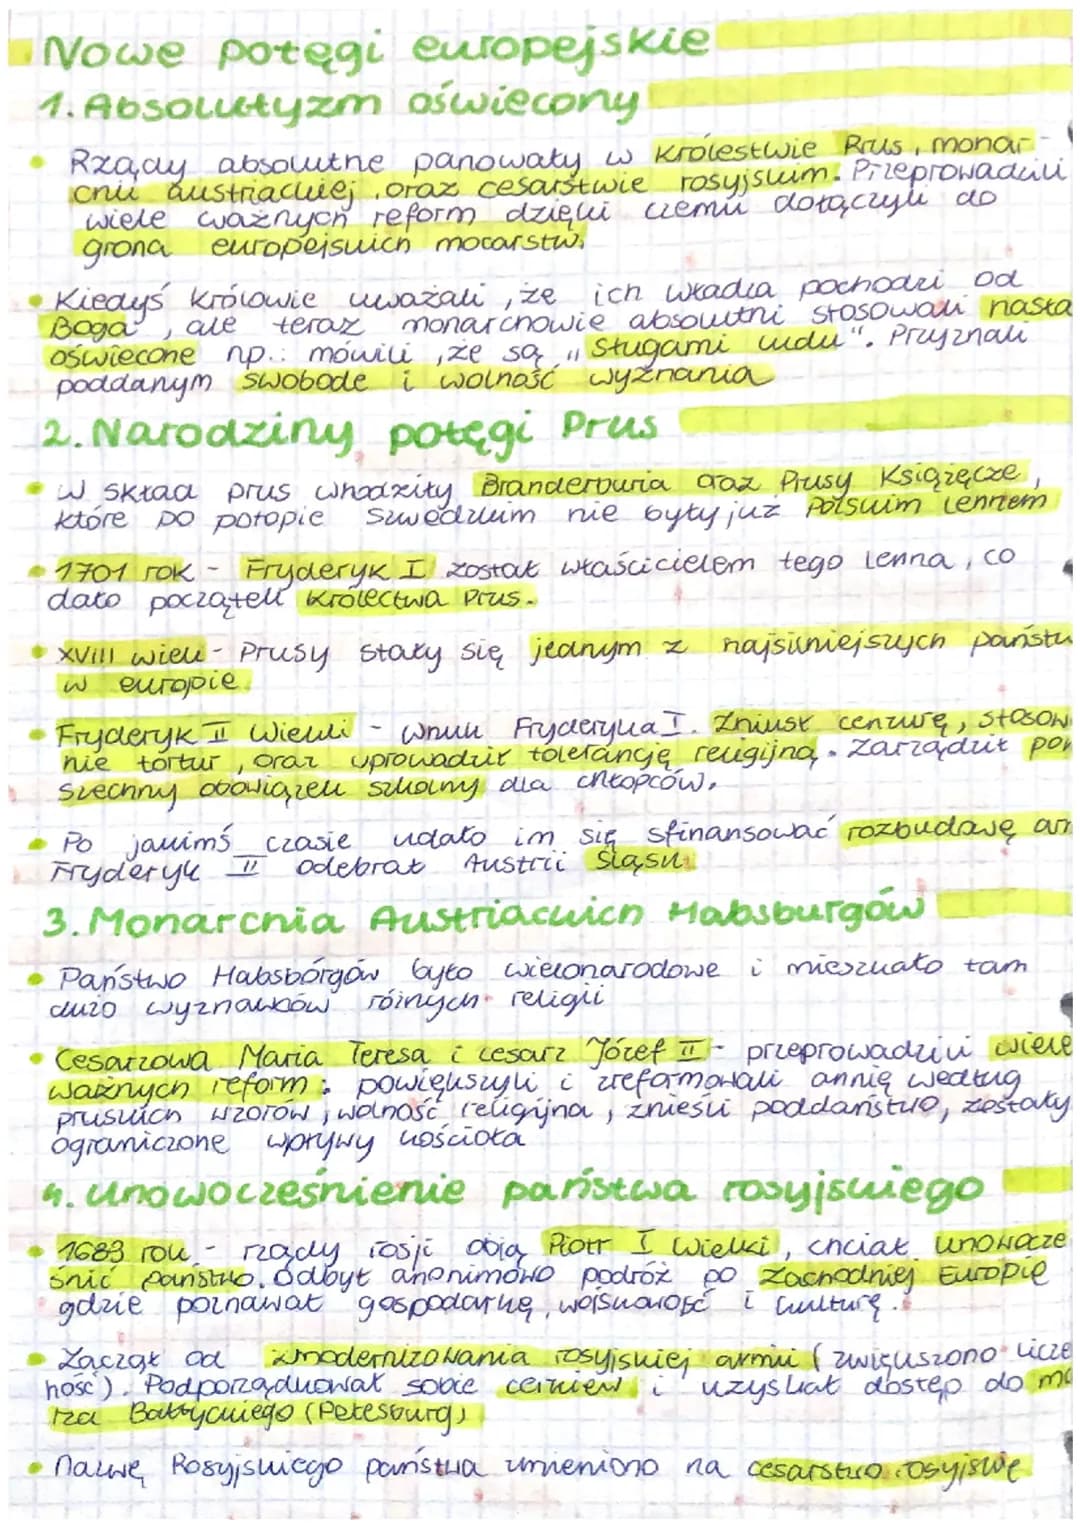 Nowe potęgi europejskie
1. Absolutyzm oświecony
• Rządy absolutne panowały w Królestwie Prus, monar-
chii austriackiej, oraz cesarstwie rosyjskim. Przeprowadzili
wiele ważnych reform dzięki czemu dołączyli do
grona europejskich mocarstw.
• Kiedyś królowie uważali, że ich władza pochodzi od
Boga, ale teraz monarchowie absolutni stosowali hasła
oświecone np.: mówili, że są „sługami ludu". Przyznali
poddanym swobodę i wolność wyznania
2. Narodziny potęgi Prus
• W skład prus whodziły Branderburia oraz Prusy Książęcze,
które po potopie szwedzkim nie były już Polskim lennem
• 1701 rok - Fryderyk I został właścicielem tego lenna, co
dało początek Królectwa Prus.
• XVIII wiek - Prusy stały się jednym z najsilniejszych państw
w europie.
• Fryderyk II Wielki - wnuk Fryderyka I. Zniusł cenzurę, stosow
nie tortur, oraz wprowadził tolerancję religijną. Zarządził pow
szechny obowiązek szkolny dla chłopców.
• Po jakimś czasie udało im się sfinansować rozbudowę arm
Fryderyk II odebrał Austrii Śląsk
3. Monarchia Austriackich Habsburgów
• Państwo Habsbórgów było wielonarodowe i mieszkało tam
dużo wyznawców różnych religii
• Cesarzowa Maria Teresa i cesarz Józef II - przeprowadzili wiele
ważnych reform: powiększyli i zreformowali armię według
pruskich wzorów, wolność religijna, znieśli poddaństwo, zostały
ograniczone wpływy kościoła
4. Unowocześnienie państwa rosyjskiego
• 1689 rok - rządy rosji obją Piotr I Wielki, chciał unowocze
śnić państwo. Odbył anonimowo podróż po Zachodniej Europie
gdzie poznawał gospodarkę, wojskowość i kulturę.
• Zaczął od zmodernizowania rosyjskiej armii (zwiększono licze
ność). Podporządkował sobie cerkiew i uzyskał dostęp do mo
rza Bałtyckiego (Petesburg)
• Nazwę Rosyjskiego państwa zmieniono na cesarstwo rosyjskie